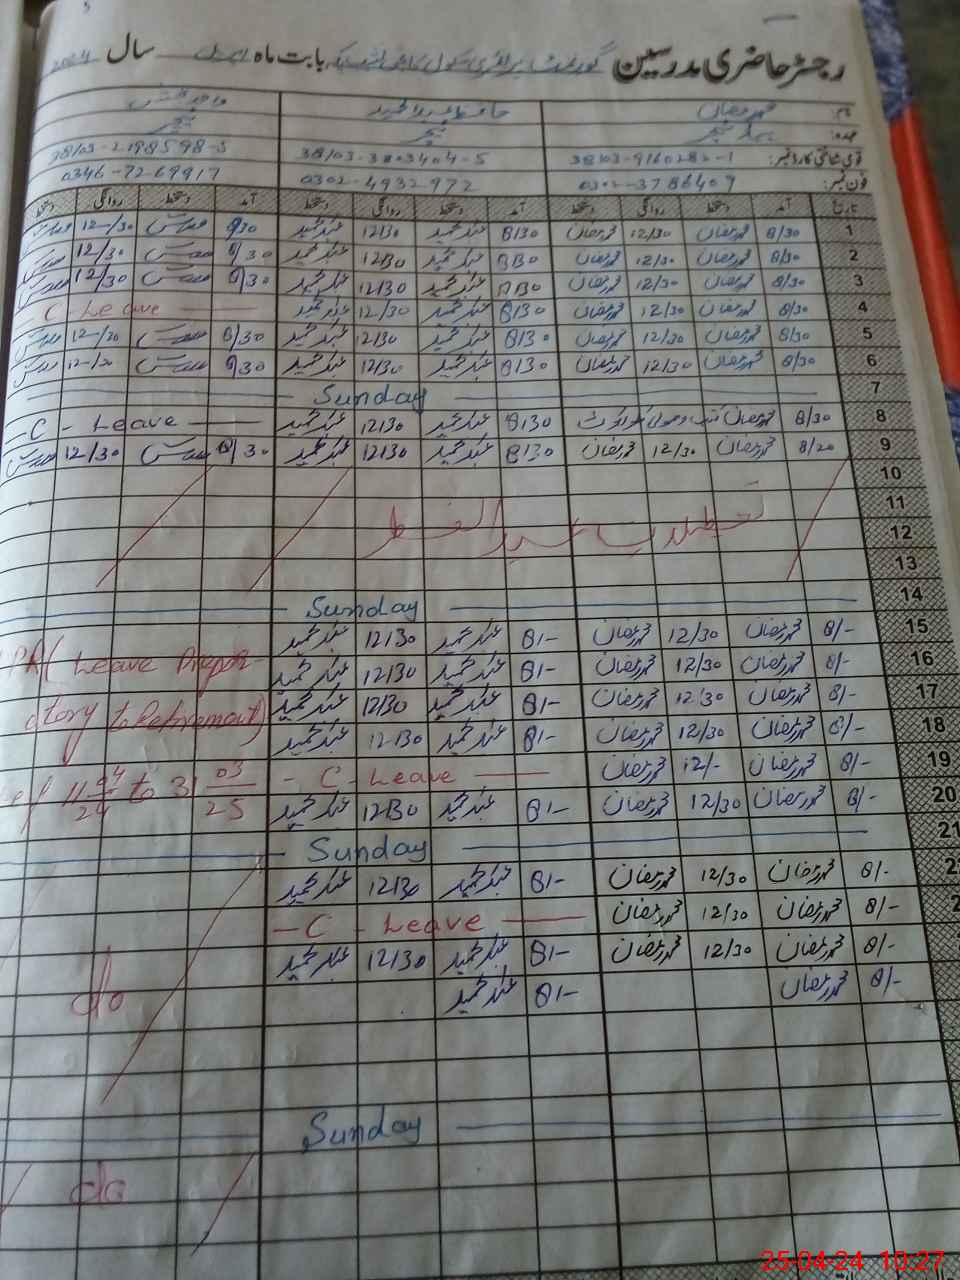 رجسٹر حاضری مدرسین گورنمنٹ پرائمری سکول بابت ماہ اپریل سال 2024
نام: محمد رمضان حافظ عبدالحمید
عہدہ: ہیڈ ٹیچر ٹیچر ٹیچر
قومی شناختی کارڈ نمبر: 38103-9160282-1 38103-3803404-5 38103-2198598-5
فون نمبر: 0302-3786409 0302-4932972 0346-7269917
تاریخ آمد دستخط روانگی دستخط آمد دستخط روانگی دستخط آمد دستخط روانگی دستخط
1 8/30 محمد رمضان 12/30 محمد رمضان 8/30 عبدالحمید 12/30 عبدالحمید 8/30 12/30
2 8/30 محمد رمضان 12/30 محمد رمضان 8/30 عبدالحمید 12/30 عبدالحمید 8/30 12/30
3 8/30 محمد رمضان 12/30 محمد رمضان 8/30 عبدالحمید 12/30 عبدالحمید 8/30 12/30
4 8/30 محمد رمضان 12/30 محمد رمضان 8/30 عبدالحمید 12/30 عبدالحمید C-Leave
5 8/30 محمد رمضان 12/30 محمد رمضان 8/30 عبدالحمید 12/30 عبدالحمید 8/30
6 8/30 محمد رمضان 12/30 محمد رمضان 8/30 عبدالحمید 12/30 عبدالحمید 8/30
7 Sunday
8 8/30 محمد رمضان 8/30 عبدالحمید 12/30 عبدالحمید C-Leave
9 محمد رمضان 12/30 محمد رمضان 8/30 عبدالحمید 12/30 عبدالحمید 8/30 12/30
10
11 تعطیلات عید الفطر
12
13
14 Sunday
15 8/- محمد رمضان 12/30 محمد رمضان 8/- عبدالحمید 12/30 عبدالحمید
16 8/- محمد رمضان 12/30 محمد رمضان 8/- عبدالحمید 12/30 عبدالحمید LPR (Leave Prepar-
17 8/- محمد رمضان 12/30 محمد رمضان 8/- عبدالحمید 12/30 عبدالحمید atory to Retirement)
18 8/- محمد رمضان 12/30 محمد رمضان 8/- عبدالحمید 12/30 عبدالحمید
19 8/- محمد رمضان 12/- محمد رمضان C-Leave 11 04/24 to 31 03/25
20 8/- محمد رمضان 12/30 محمد رمضان 8/- عبدالحمید 12/30 عبدالحمید
21 Sunday
8/- محمد رمضان 12/30 محمد رمضان 8/- عبدالحمید 12/30 عبدالحمید
8/- محمد رمضان 12/30 محمد رمضان C-Leave
8/- محمد رمضان 12/30 محمد رمضان 8/- عبدالحمید 12/30 عبدالحمید
8/- محمد رمضان 8/- عبدالحمید do
Sunday
do
25-04-24 10:27